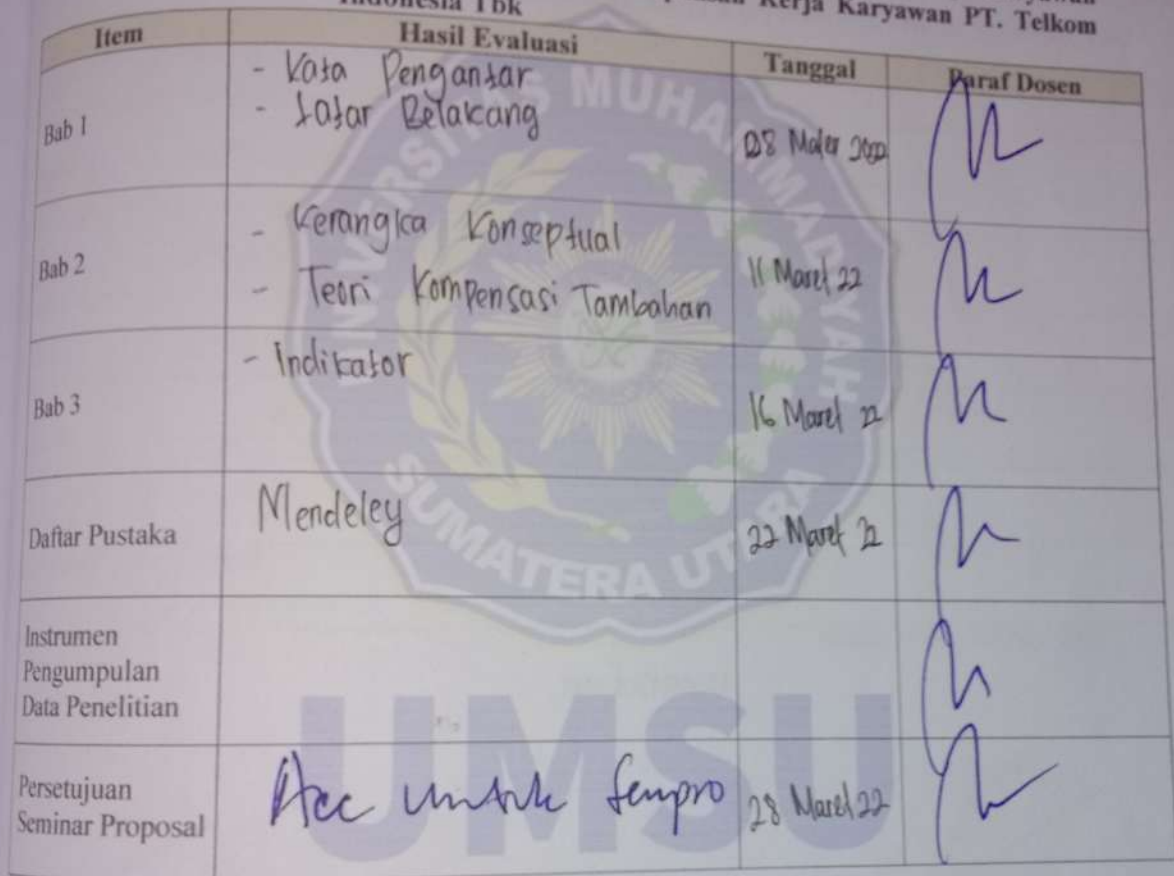 Kerja Karyawan PT. Telkom
Indonesia Tbk
Item Hasil Evaluasi Tanggal Paraf Dosen
Bab 1
- Kata Pengantar
- Latar Belakang
08 Maret 2022
Bab 2
- Kerangka Konseptual
- Teori Kompensasi Tambahan
11 Maret 22
Bab 3
- Indikator
16 Maret 22
Daftar Pustaka
Mendeley
22 Maret 22
Instrumen
Pengumpulan
Data Penelitian
Persetujuan
Seminar Proposal
Acc untuk Sempro
28 Maret 22
UNIVERSITAS MUHAMMADIYAH
SUMATERA UTARA
UMSU